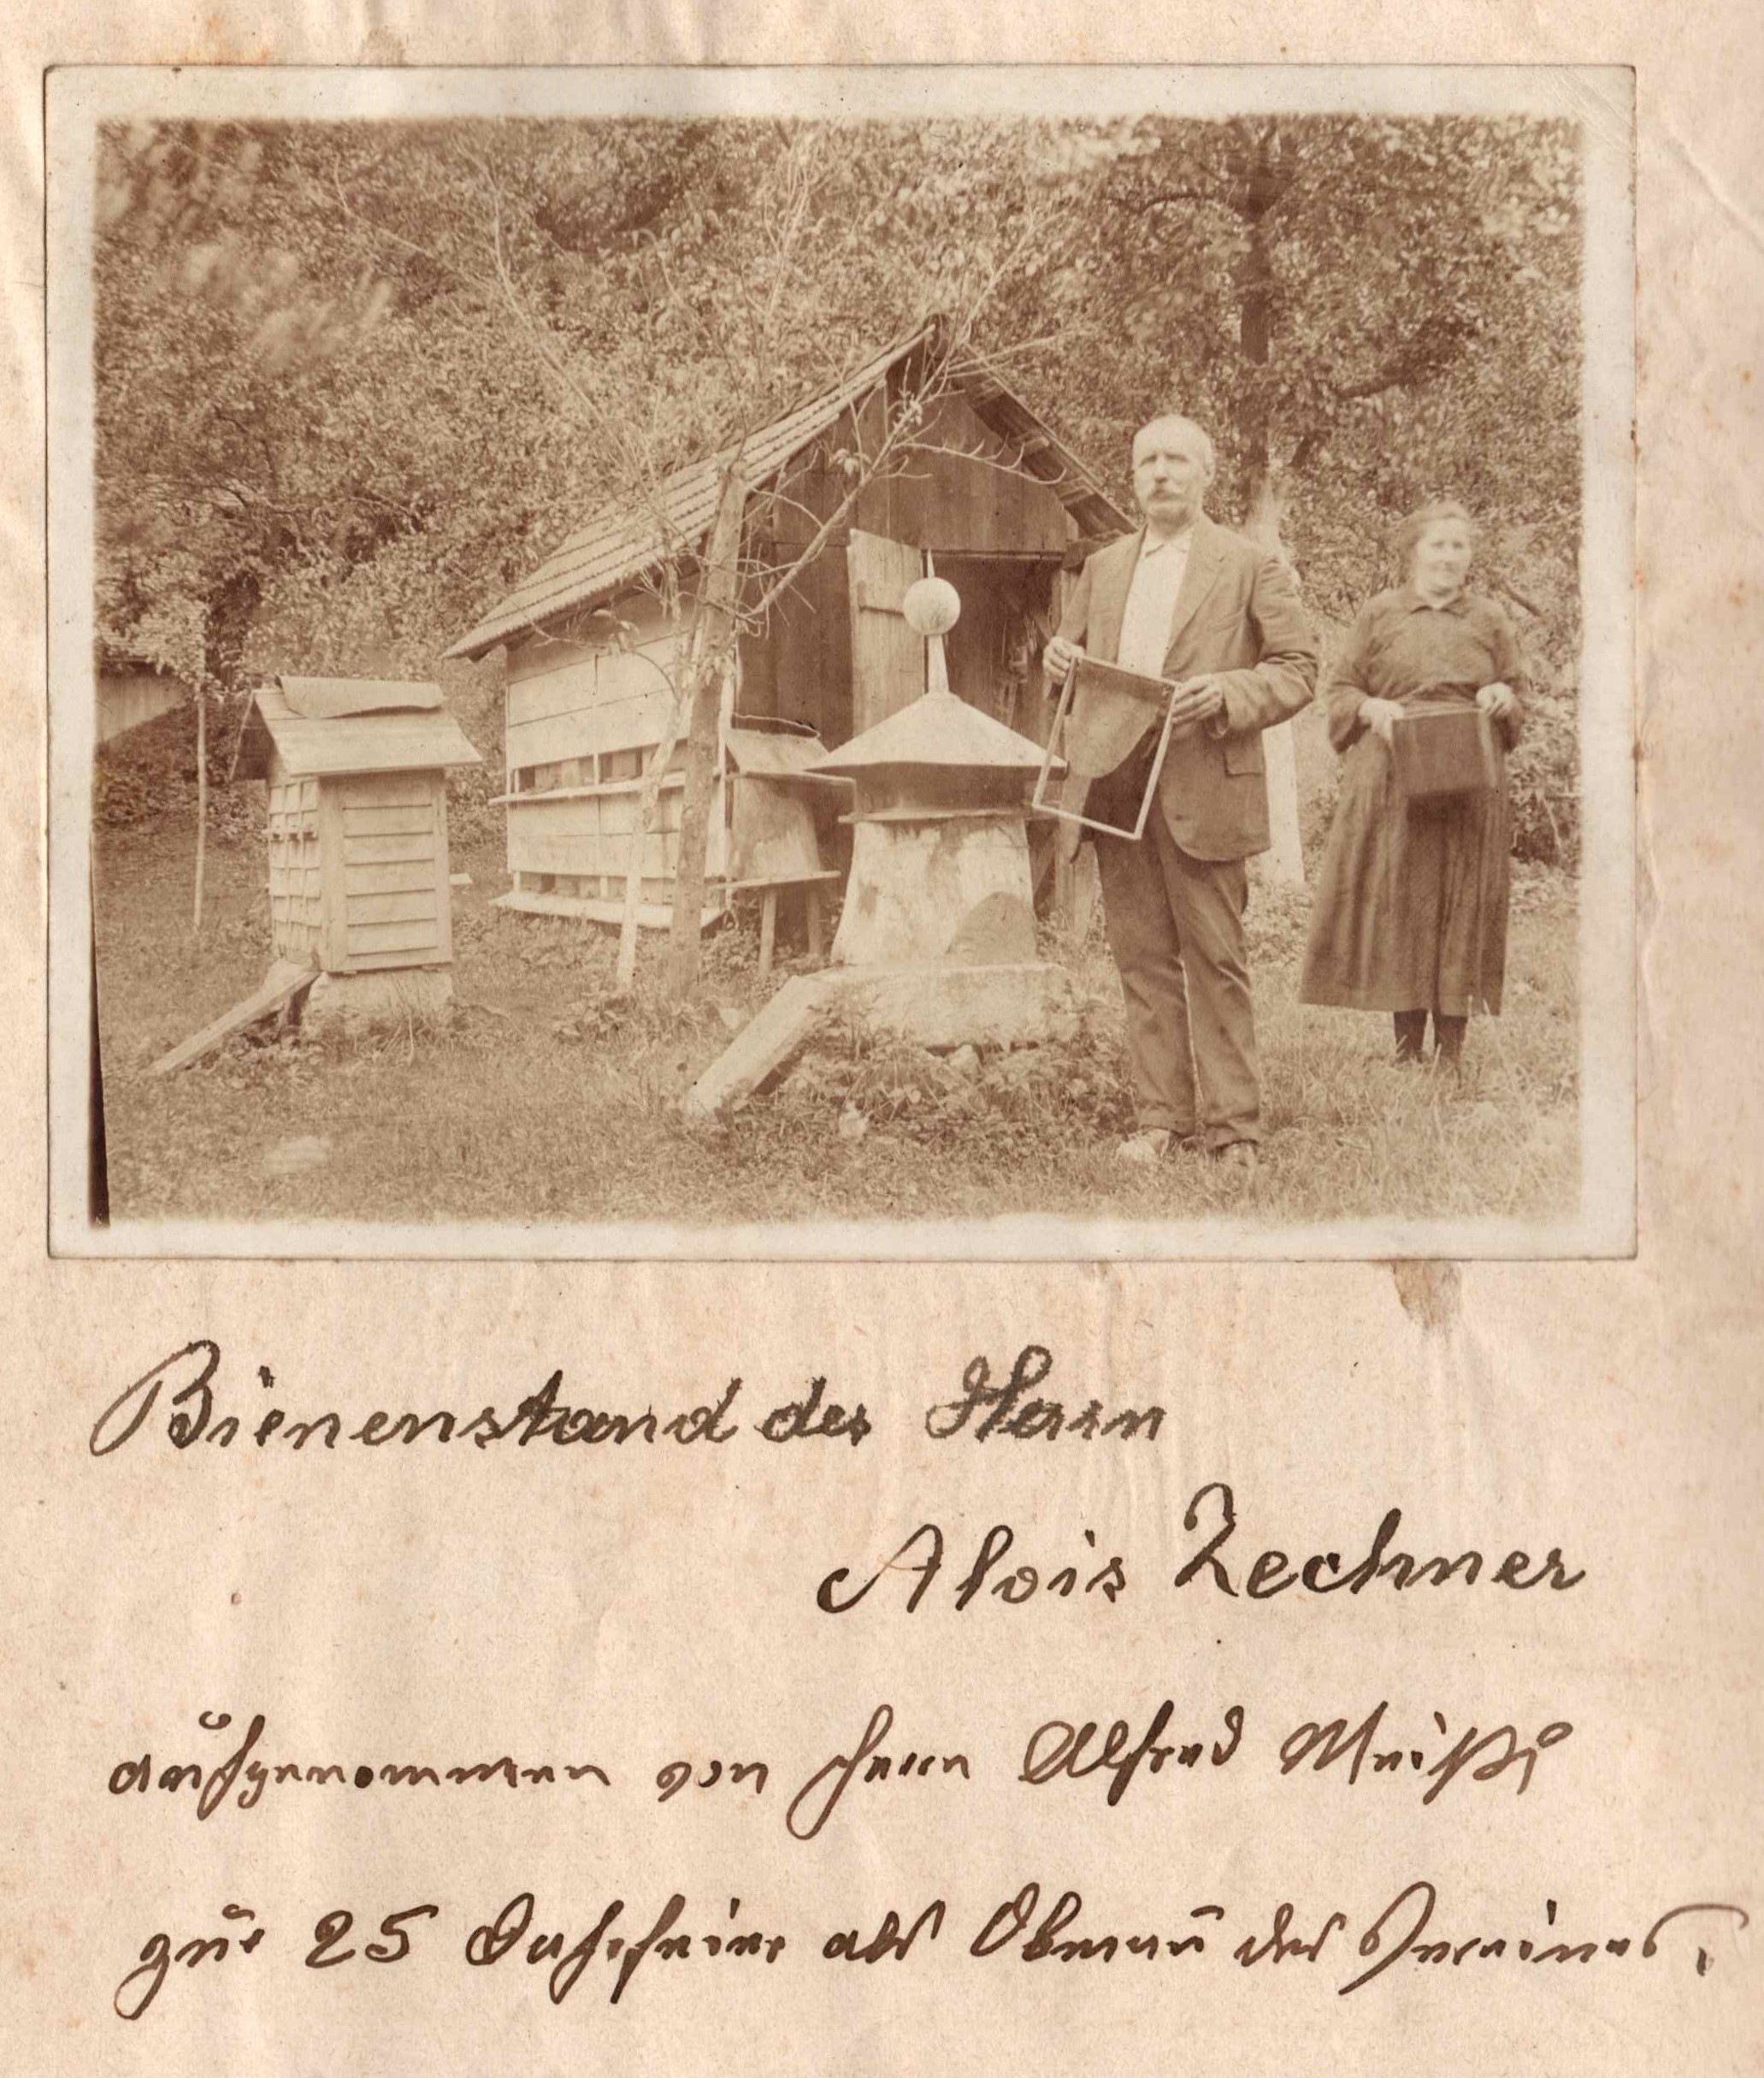 Bienenstand des Herrn
Alois Zechner
aufgenommen von Herrn Alfred
zur 25 Jahrfeier als Obmañ des Vereines.